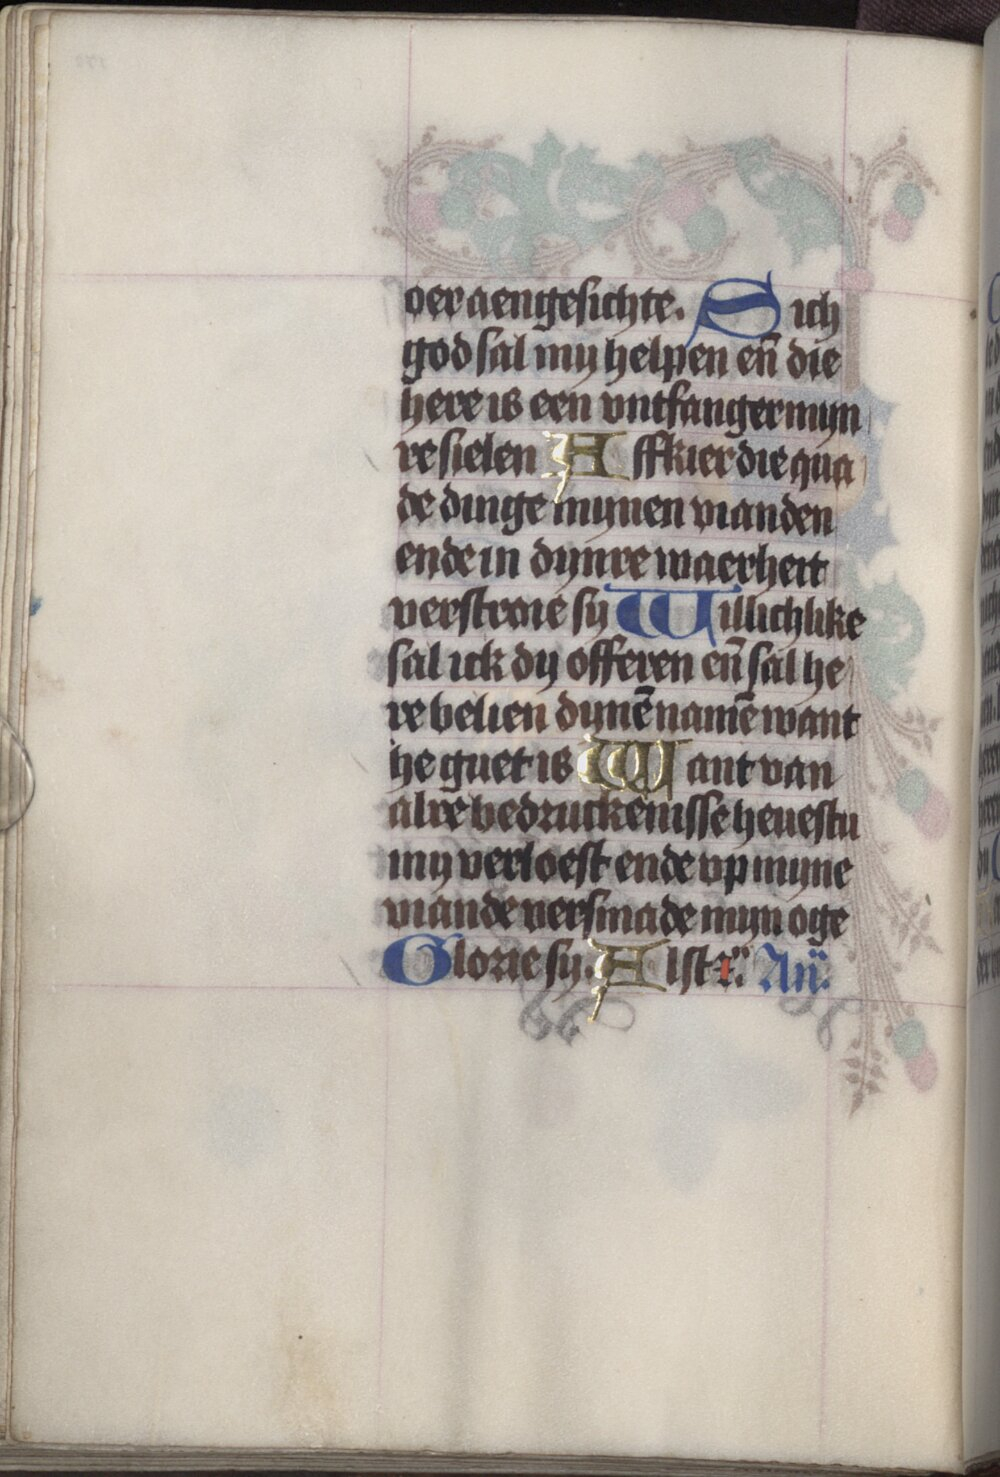 oer aengesichte. Sich
god sal my helpen en̄ die
here is een vntfanger myn
re sielen Affkier die qua
de dinge mynen vianden
ende in dynre waerheit
verstroie sy Willichlike
sal ick dy offeren en̄ sal he
re belien dynē namē want
he guet is Want van
alre bedruckenisse heuestu
my verloest ende vp myne
viande versmade myn oge
Glorie sy. Alst